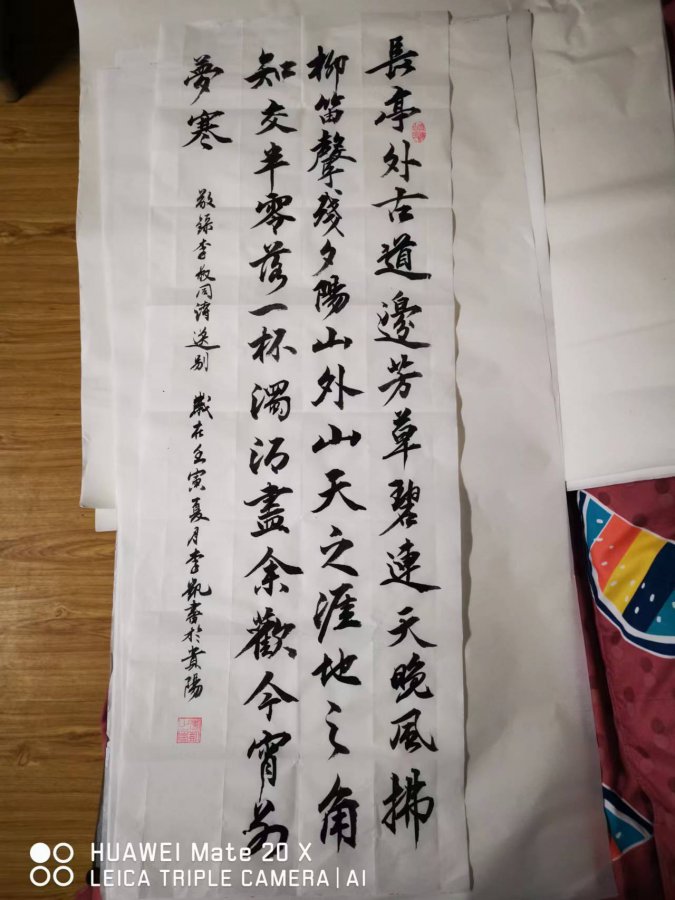 長亭外古道邊芳草碧連天晚風拂
柳笛聲殘夕陽山外山天之涯地之角
知交半零落一杯濁酒盡余歡今宵別
夢寒
敬錄李叔同詩送別 歲在壬寅夏月李凱書於貴陽
HUAWEI Mate 20 X
LEICA TRIPLE CAMERA | AI